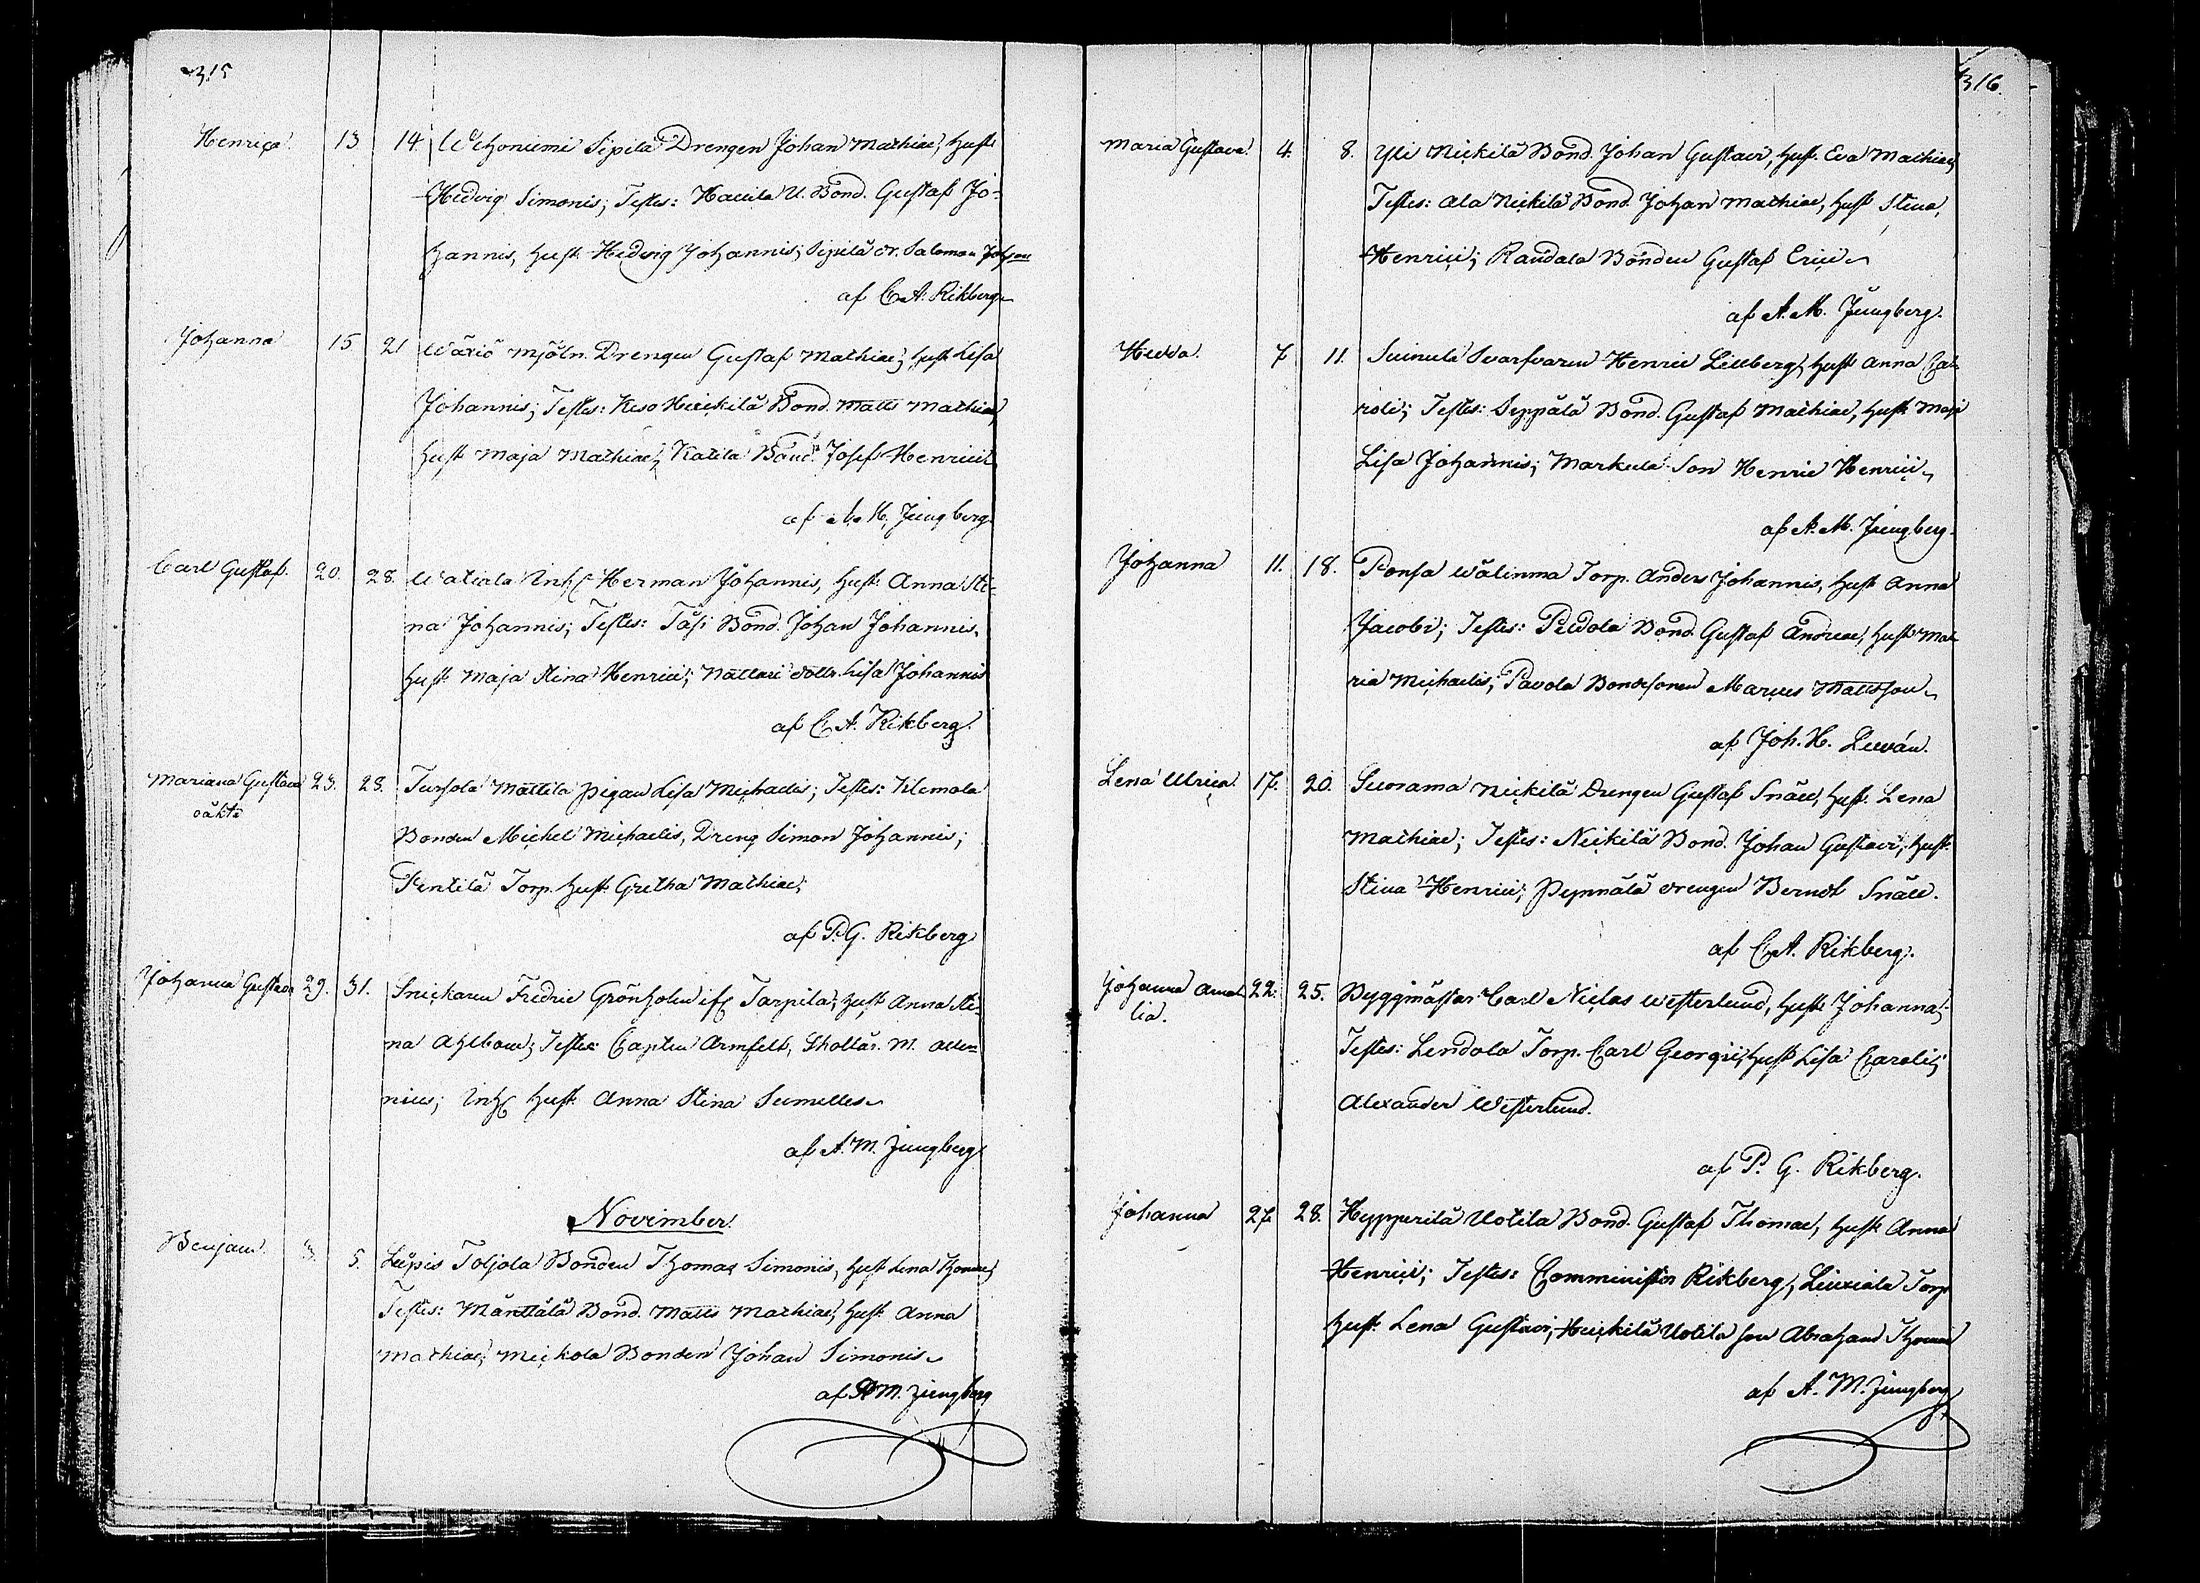 315
Henrica. 13 14 Wehoniemi Sipilä Drengen Johan Mathiae, hust.
Hedvig Simonis; Testes: Bond. Gustaf Jo-
hannis, hust. Hedvig Johannis; Sipilä dr. Salomon Johsson
af C. A. Rikberg
Johanna 15 21 Wäxiö mjöln. Drengen Gustaf Mathiae, hust. Lisa
Johannis; Testes: Keso Heickilä Bond. Matts Mathiae,
hust. Maja Mathiae; Katila Bond. Josef Henrici
af A. M. Jungberg.
Carl Gustaf. 20. 28. Watiala Inh. Herman Johannis, hust. Anna Sti-
na Johannis; Testes: Täsi Bond. Johan Johannis,
hust. Maja Stina Henrici; Nattari dottr. Lisa Johannis
af C. A. Rikberg.
Mariana Gustava 23. 28. Tursola Mattila pigan Lisa Michaelis; Testes: Kilemola
oäkta
Bonden Michel Michaelis, Dreng Simon Johannis;
Pentilä Torp. hust. Gretha Mathiae;
af P. G. Rikberg
Johanna Gustava 29. 31. Snickaren Fredric Grönholm ifr. Tarpila, hust. Anna Sti-
na Ahlbom; Testes: Capten Armfelt, Skollär. M. Alle-
nius; Inh. hust. Anna Stina Sumelles
af A. M. Jungberg.
November.
Benjam. 3. 5. Leipis Toljola Bonden Thomas Simonis, hust. Lena Thomae;
Testes: Mänttälä Bond. Matts Mathiae, hust. Anna
Mathiae; Mickola Bonden Johan Simonis
af A. M. Jungberg
316.
Maria Gustava. 4. 8. Yli Nickilä Bond. Johan Gustavi, hust. Eva Mathiae;
Testes: Ala Nickilä Bond. Johan Mathiae, hust. Stina
Henrici; Randala Bonden Gustaf Erici
af A. M. Jungberg.
Hedda. 7 11. Suinula Svarfvaren Henric Lillberg, hust. Anna Ca-
roli; Testes: Seppälä Bond. Gustaf Mathiae, hust. Maja
Lisa Johannis; Markula Son Henric Henrici
af A. M. Jungberg.
Johanna 11. 18. Ponsa Wälinma Torp. Anders Johannis, hust. Anna
Jacobi; Testes: Peldola Bond. Gustaf Andreae, hust. Ma-
ria Michaelis; Pavola Bondesonen Marcus Mattsson
af Joh. H. Levan.
Lena Ulrica. 17. 20. Suorama Nickilä Drengen Gustaf Snäll, hust. Lena
Mathiae; Testes: Nickilä Bond. Johan Gustavi, hust.
Stina Henrici; Pynnälä drengen Berndt Snäll.
af C. A. Rikberg.
Johanna Ama- 22. 25. Byggmästar Carl Niclas Westerlund, hust. Johanna;
lia.
Testes: Lendola Torp. Carl Georgii, hust. Lisa Caroli;
Alexander Westerlund.
af P. G. Rikberg.
Johanna 27 28. Hypperilä Uotila Bond. Gustaf Thomae, hust. Anna
Henrici; Testes: Comminister Rikberg, Liuxiala Torp.
hust. Lena Gustavi, Heickilä Uotila son Abraham Thomae
af A. M. Jungberg